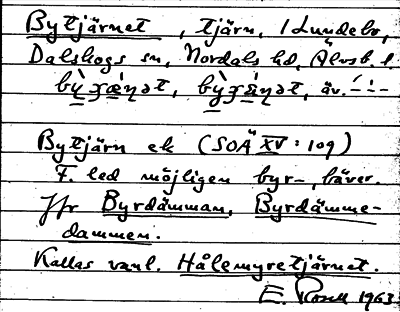 Bytjärnet, tjärn, i Lundebo,
Dalskogs sn, Nordals hd, Älvsb. l.
Bytjärn ek (SOÄ XV: 109)
F. led möjligen byr-, bäver.
Jfr Byrdämman, Byrdämme-
dammen.
Kallas vanl. Hålemyretjärnet.
E. Rosell 1963